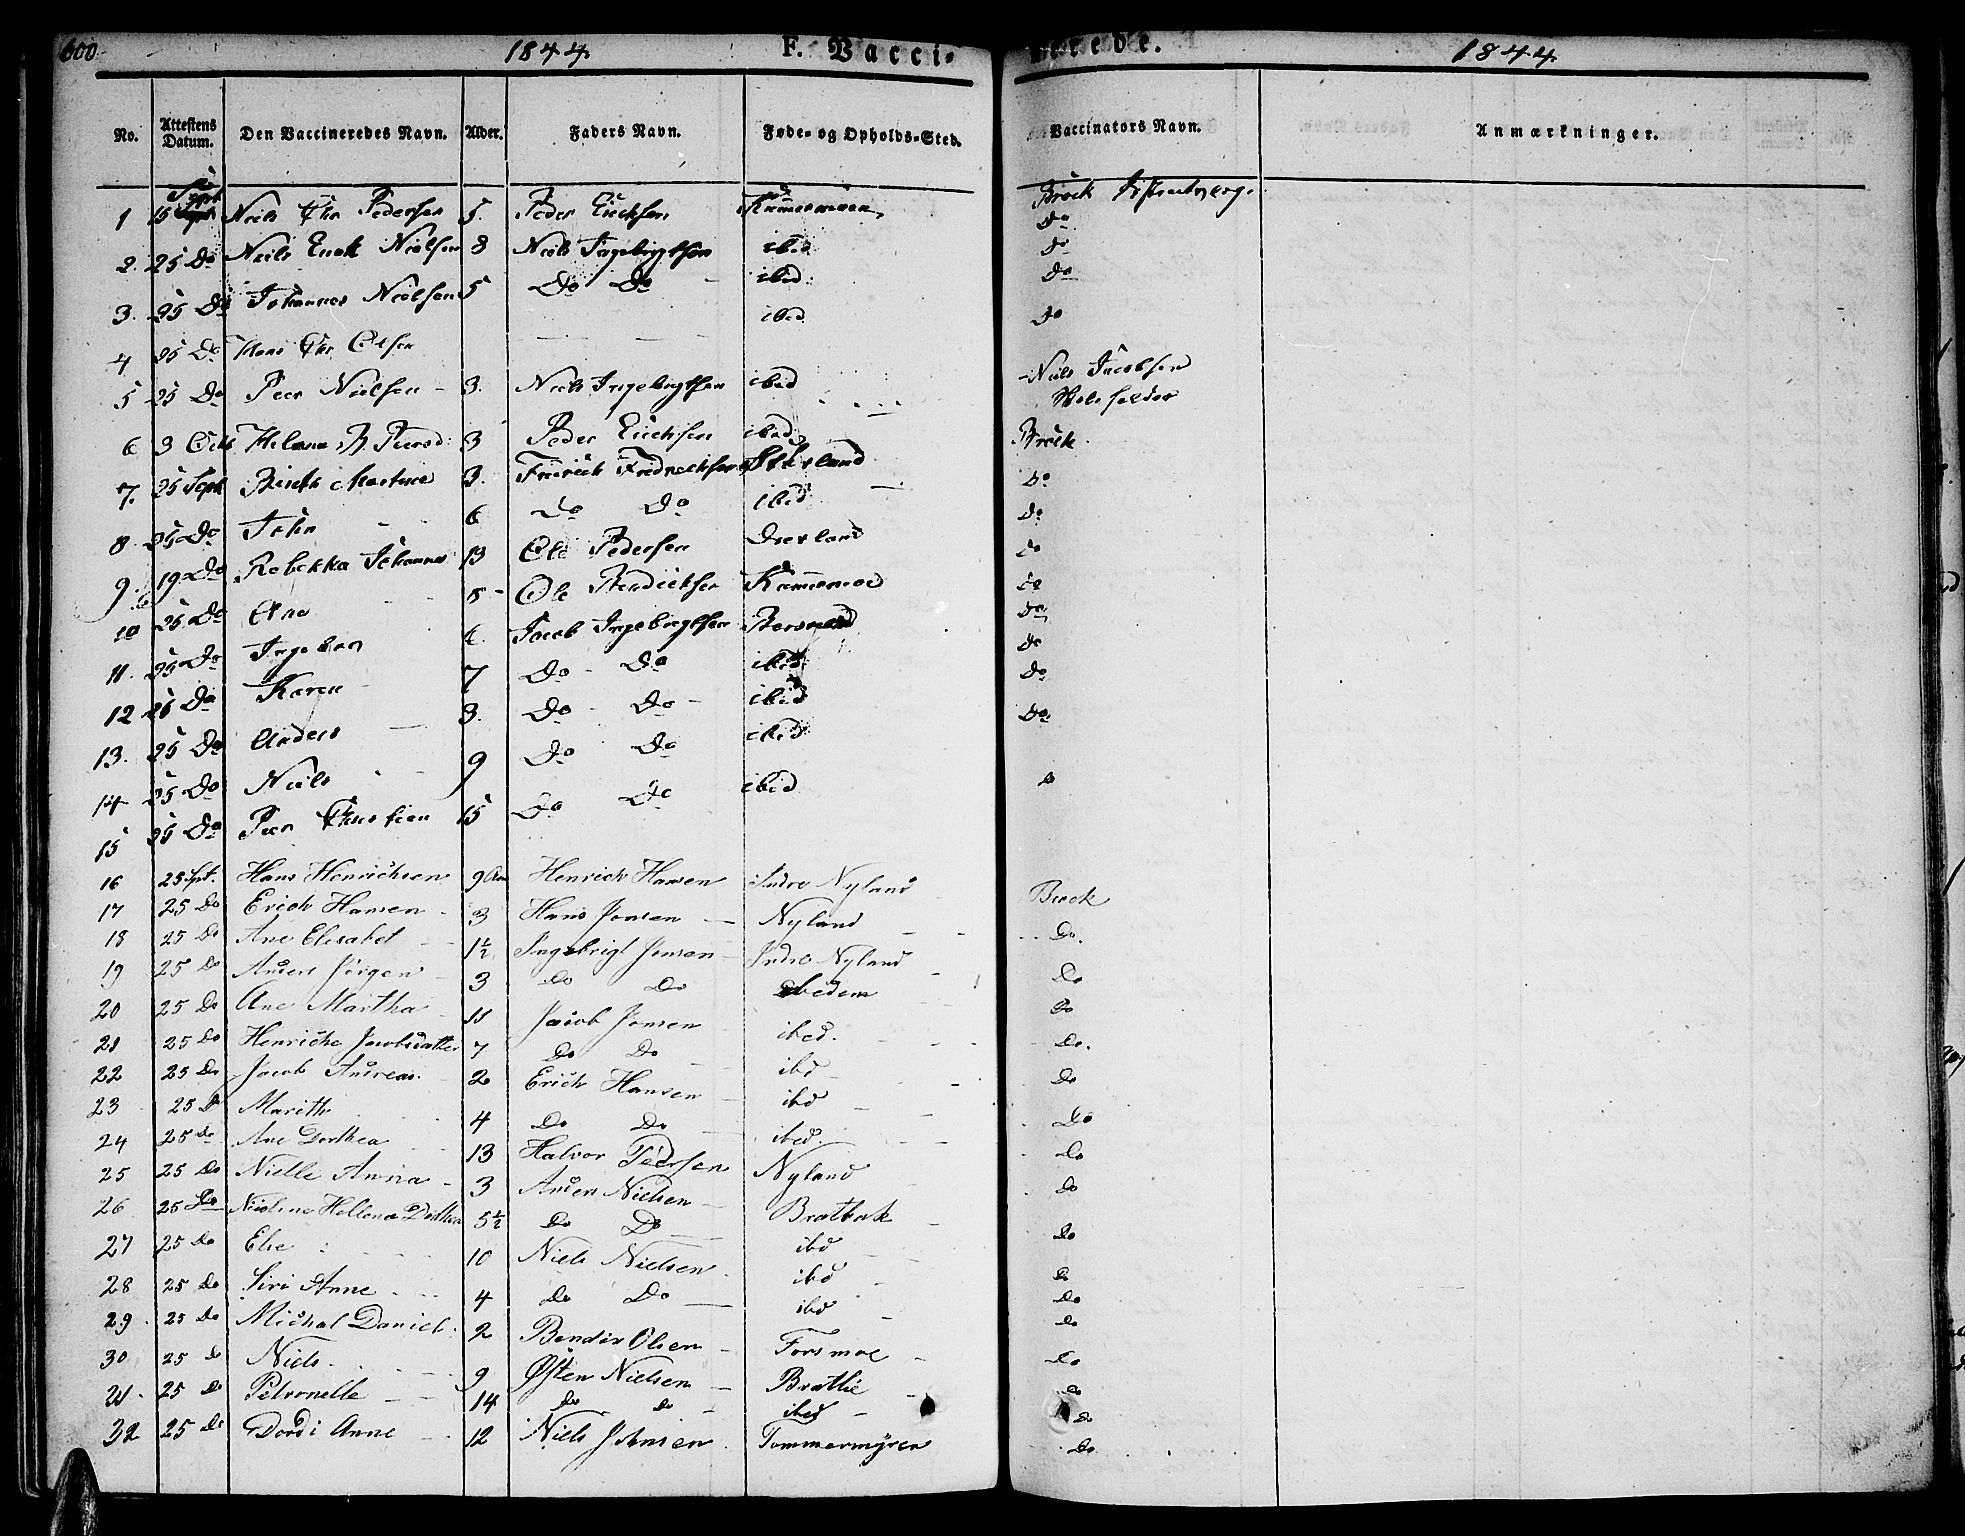 600 1844 F. Vacci- nerede. 1844
No. Attestens Datum. Den Vaccineredes Navn. Alder. Faders Navn. Føde- og Opholds-Sted. Vaccinators Navn. Anmærkninger.
1 15 Sept Niels Chr Pedersen 5. Peder Erichsen Brock
2. 25 Do Niels Nielsen 8 Niels Ingebrigtsen ibid Do
3. 25 Do Johannes Nielsen 5 Do Do ibid Do
4 25 Do Hans Chr Olsen ibid Do
5 25 Do Peer Nielsen 3. Niels Ingebrigtsen ibid Niels Jacobsen
6 3 Octb Helena 3 Peder Erichsen ibid Brock
7. 25 Sept Birith Martine 3. Friderich Fredrechsen Do
8 25 Do John 6 Do Do ibid Do
9. 19 Do Rebekka Johanna 13 Ole Pedersen Do
10 25 Do Ane 8 Ole Bendichsen Kammermoe Do
11. 25 Do Ingebor 6. Jacob Ingebrigtsen Do
12 26 Do Karen 7 Do Do ibid Do
13. 25 Do Anders 3. Do Do ibid Do
14 25 Do Niels 9 Do Do ibid Do
15 25 Do Peer Christian 15 Do Do ibid
16 25 Spt. Hans Henrichsen 9 Aar Henrich Hansen Indre Nyland Brock
17 25 Do Erich Hansen 3 Hans Jonsen Nyland Do.
18 25 Do Ane Elisabet 1½ Ingebrigt Jonsen Indre Nyland Do
19 25 Do Anders Jørgen 3 Do Do ibedem Do
20 25 Do Ane Martha 11 Jacob Jonsen ibed. Do.
21 25 Do Henriche Jacobsdatter 7 Do Do ibd Do
22 25 Do Jacob Andreas 2 Erich Hansen ibd Do
23 25 D Marith 4 Do Do ibed. Do
24 25 Do Ane Dorthea 13 Halvor Pedersen Nyland Do
25 25 Do Nielle Anna 3 Anders Nielsen Bratbak Do
26 25 Do Nicoline Hellena Dorthea 5½ Do Do ibd Do
27 25 Do Else 10 Niels Nielsen ibd Do
28 25 Do Siri Anne 4 Do Do ibd Do
29. 25 Do Michal Daniel 2 Bendix Olsen Forsmoe Do
30 25 Do Niels 9 Østen Nielsen Bratlie Do
31. 25 Do Petronelle 14 Do Do ibed Do
32 25 Do Dordi Anne 12 Niels Johnsen Tommermyren Do